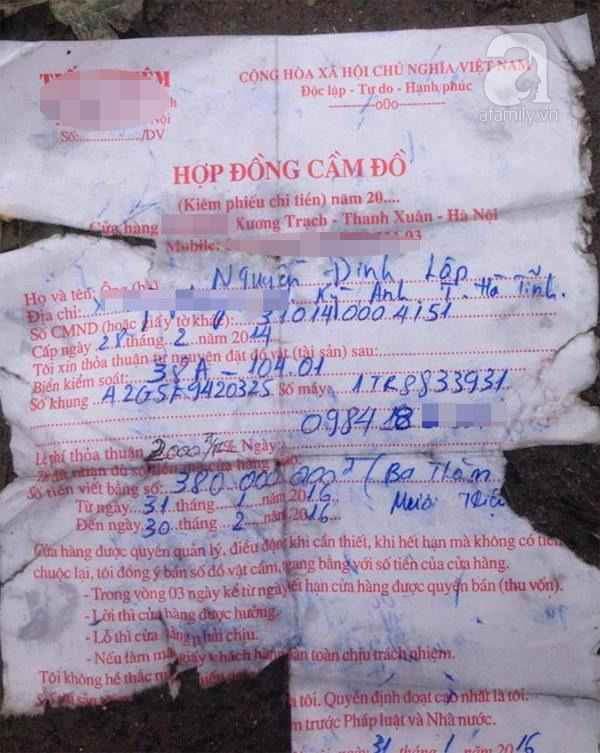 CỘNG HÒA XÃ HỘI CHỦ NGHĨA VIỆT NAM
Độc lập - Tự do - Hạnh phúc
-----------o0o-----------
Số:....../DV
a
afamily.vn
HỢP ĐỒNG CẦM ĐỒ
(Kiêm phiếu chi tiền) năm 20....
Cửa hàng Xương Trạch - Thanh Xuân - Hà Nội
Mobile: 03
Họ và tên: Ông (bà) Nguyễn Đình Lập
Địa chỉ: Kỳ Anh T. Hà Tĩnh.
Số CMND (hoặc giấy tờ khác): 31014000 4151
Cấp ngày 28 tháng 2 năm 2014
Tôi xin thỏa thuận tự nguyện đặt đồ vật (tài sản) sau:
Biển kiểm soát: 38A - 104.01
Số khung A2GSF9420325 Số máy: 1TR8833931
0984
Lệ phí thỏa thuận 2000 Ngày:
đã nhận đủ số tiền mà cửa hàng
Số tiền viết bằng số: 380.000.000đ (Ba Trăm
Từ ngày 31 tháng 1 năm 2016 Mươi
Đến ngày 30 tháng 2 năm 2016
Cửa hàng được quyền quản lý, điều động khi cần thiết, khi hết hạn mà không có tiền
chuộc lại, tôi đồng ý bán số đồ vật cầm, ngang bằng với số tiền của cửa hàng.
- Trong vòng 03 ngày kể từ ngày hết hạn cửa hàng được quyền bán (thu vốn).
- Lời thì cửa hàng được hưởng.
- Lỗ thì cửa hàng phải chịu.
- Nếu làm mất giấy khách hàng hoàn toàn chịu trách nhiệm.
Tôi không hề thắc mắc
Số tài sản tôi. Quyền định đoạt cao nhất là tôi.
trước Pháp luật và Nhà nước.
31 tháng 1 năm 2016